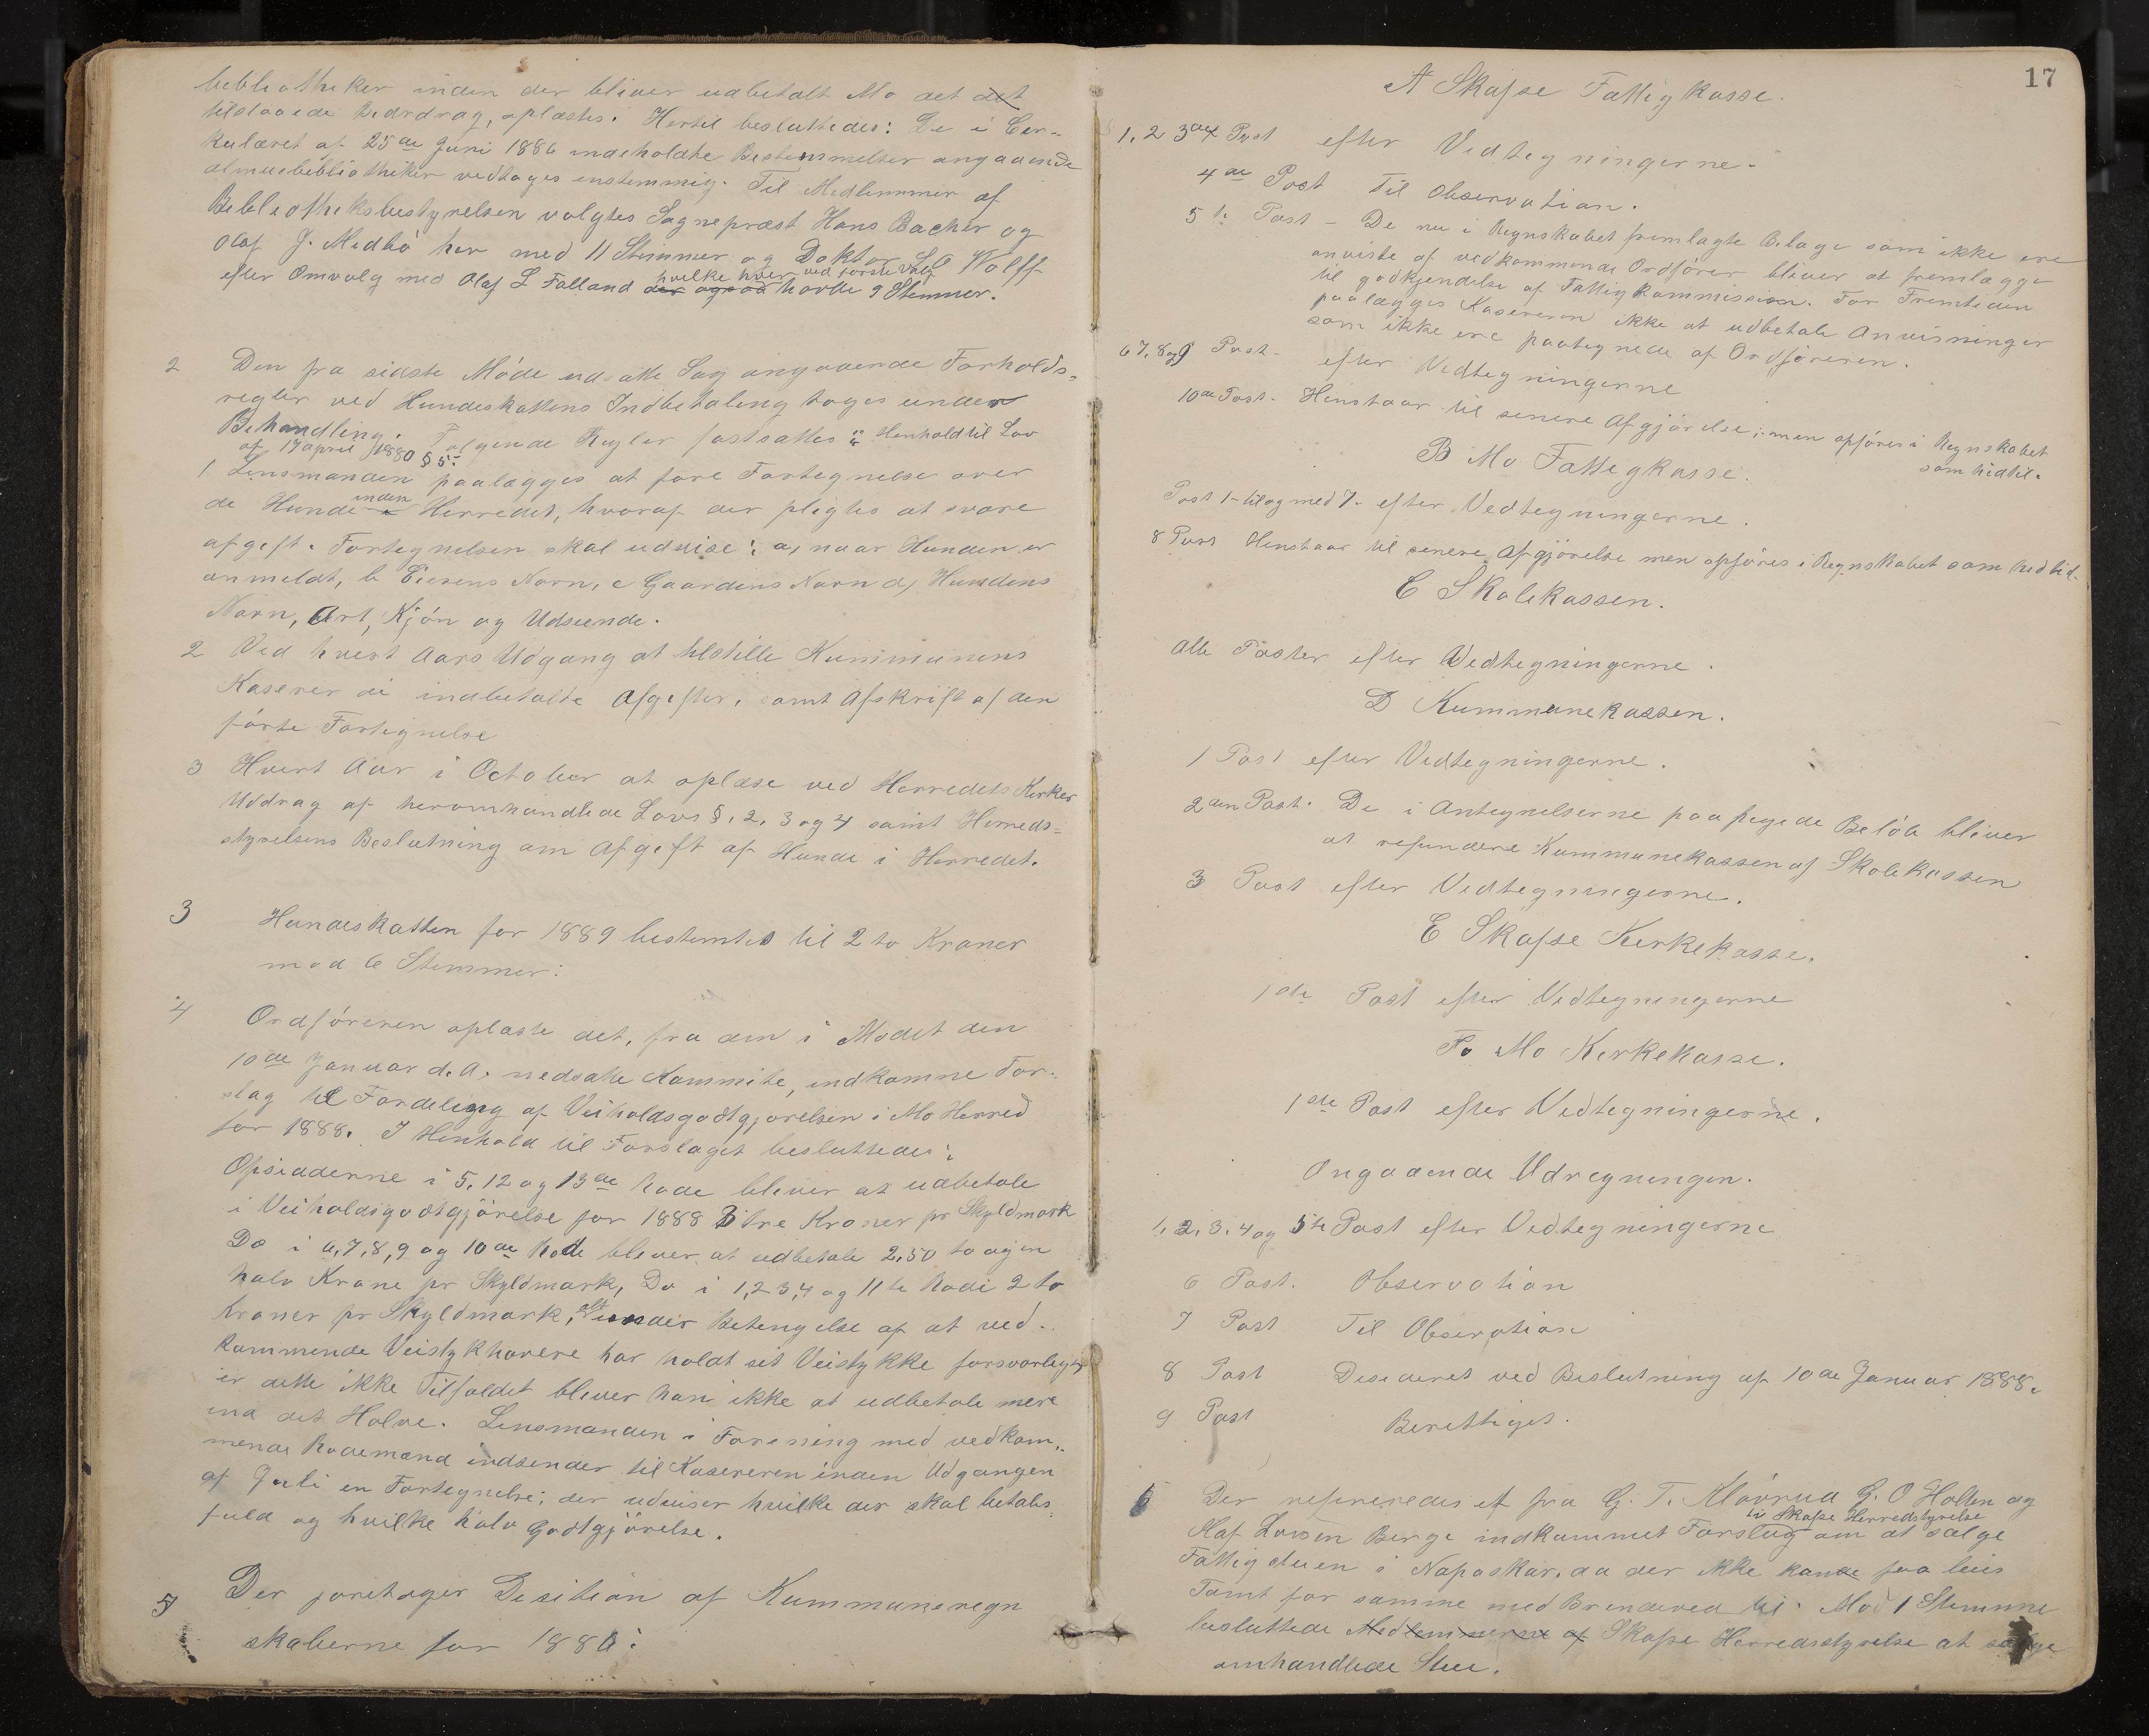 bebliotheker inden der bliver udbetalt Mo det det
tilstaaede Bedrdrag, oplæstes. Hertil besluttedes: De i Cer-
kulæret af 25de Juni 1886 indeholdte Bestemmelser angaaende
almuebibliotheker vedtages enstemmig. Til Medlemmer af
Bebliotheksbestyrelsen valgtes Sognepræst Hans Bacher og
Olaf J. Medbö hver med 11 Stimmer og Doktor S O Wolff
efter Omvalg med Olaf L Falland der ogsaa hvilke hver ved første Valg havde 9 Stemmer.
2 Den fra sidste Möde udsatte Sag angaaende Forholds-
regler ved Hundeskattens Indbetaling toges under
Behandling. Følgende Regler fastsattes i Henhold til Lov
af 17 april 1880 § 5:
1 Lensmanden paalægges at føre Fortegnelse over
de Hunde inden Herredet, hvoraf der pligtes at svare
afgift. Fortegnelsen skal udvise: a, naar Hunden er
anmeldt, b Eierens Navn, c Gaardens Navn d, Hundens
Navn, Art, Kjön og Udseende.
2 Ved hvert Aars Udgang at tilstille Kummunens
Kaserer de indbetalte Afgifter, samt Afskrift af den
förte Fortegnelse
3 Hvert Aar i October at oplæse ved Herredets Kirker
Uddrag af heromhandlede Lovs §. 2, 3 og 4 samt Herreds-
styrelsens Beslutning om Afgift af Hunde i Herredet.
3 Hundeskatten for 1889 bestemtes til 2 to Kroner
mod 6 Stemmer:
4 Ordföreren oplæste det, fra den i Mödet den
10de Januar d. A. nedsatte Kommite, indkomne For-
slag til Fordeling af Veiholdsgodtgjørelsen i Mo Herred
for 1888. I Henhold til Forslaget besluttedes:
Opsidderne i 5, 12 og 13de Rode bliver at udbetale
i Veiholdsgodtgjörelse for 1888 3 tre Kroner pr Skyldmark
Do i 6, 7, 8, 9 og 10de Rode bliver at udbetale 2,50 to og en
halv Krone pr Skyldmark, Do i 1, 2 3, 4 og 11te Rode 2 to
Kroner pr Skyldmark, alt under Betengelse af at ved-
kommende Veistykhavere har holdt sit Veistykke forsvarligt,
er dette ikke Tilfældet bliver han ikke at udbetale mere
end det Halve. Lensmanden i Forening med vedkom-
mende Rodemand indsender til Kasereren inden Udgangen
af Juli en Fortegnelse, der udviser hvilke der skal betales
fuld og hvilke halv Godtgjörelse.
5 Der foretages Desition af Kummuneregn
skaberne for 1886:
17
A Skafse Fattigkasse.
1, 2 3die Post efter Vedtegningerne.
4de Post Til Observation.
5te Post - De nu i Regnskabet fremlagte Bilage som ikke ere
anviste af vedkommende Ordförer bliver at fremlægge
til godkjendelse af Fattigkommissien. For Fremtiden
paalægges Kasereren ikke at udbetale Anvisninger
som ikke ere paategnede af Ordföreren.
6 7, 8 og 9 Post - efter Vedtegningerne
10de Post - Henstaar til senere Afgjörelse, men opføres i Regnskabet
som hidtil.
B Mo Fattigkasse.
Post 1 - til og med 7 - efter Vedtegningerne.
8 Post Henstaar til senere Afgjörelse men opføres i Regnskabet som hidtil.
C Skolekassen.
Alle Poster efter Vedtegningerne.
D Kummunekassen.
1 Post efter Vedtegningerne.
2den Post. De i Antegnelserne paapegede Belöb bliver
at refundere Kummunekassen af Skolekassen
3 Post efter Vedtegningerne.
E Skafse Kirkekasse.
1ste Post efter Vedtegningerne
F. Mo Kirkekasse.
1ste Post efter Vedtegningerne.
Angaaende Udregningen.
1, 2, 3, 4 og 5te Post efter Vedtegningerne
6 Post. Observation
7 Post Til Observation
8 Post Desideret ved Beslutning af 10de Januar 1888.
9 Post Berettiget.
6 Der refereredes et fra G. T. Klövrud G. O Holten og
Olaf Larsen Berge indkommet Forslag til Skafse Herredstyrelse om at sælge
Fattigstuen i Napaskar, da der ikke kande faa leies
Tomt for samme med Brendeved til. Mod 1 Stemme
besluttede Medlemmerne af Skafse Herredsstyrelse at sælge
omhandlede Stue.